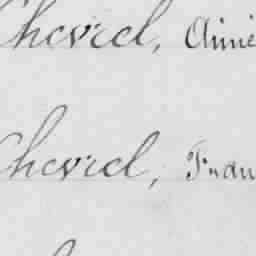 Chevrel, Aimé
Chevrel, Fran